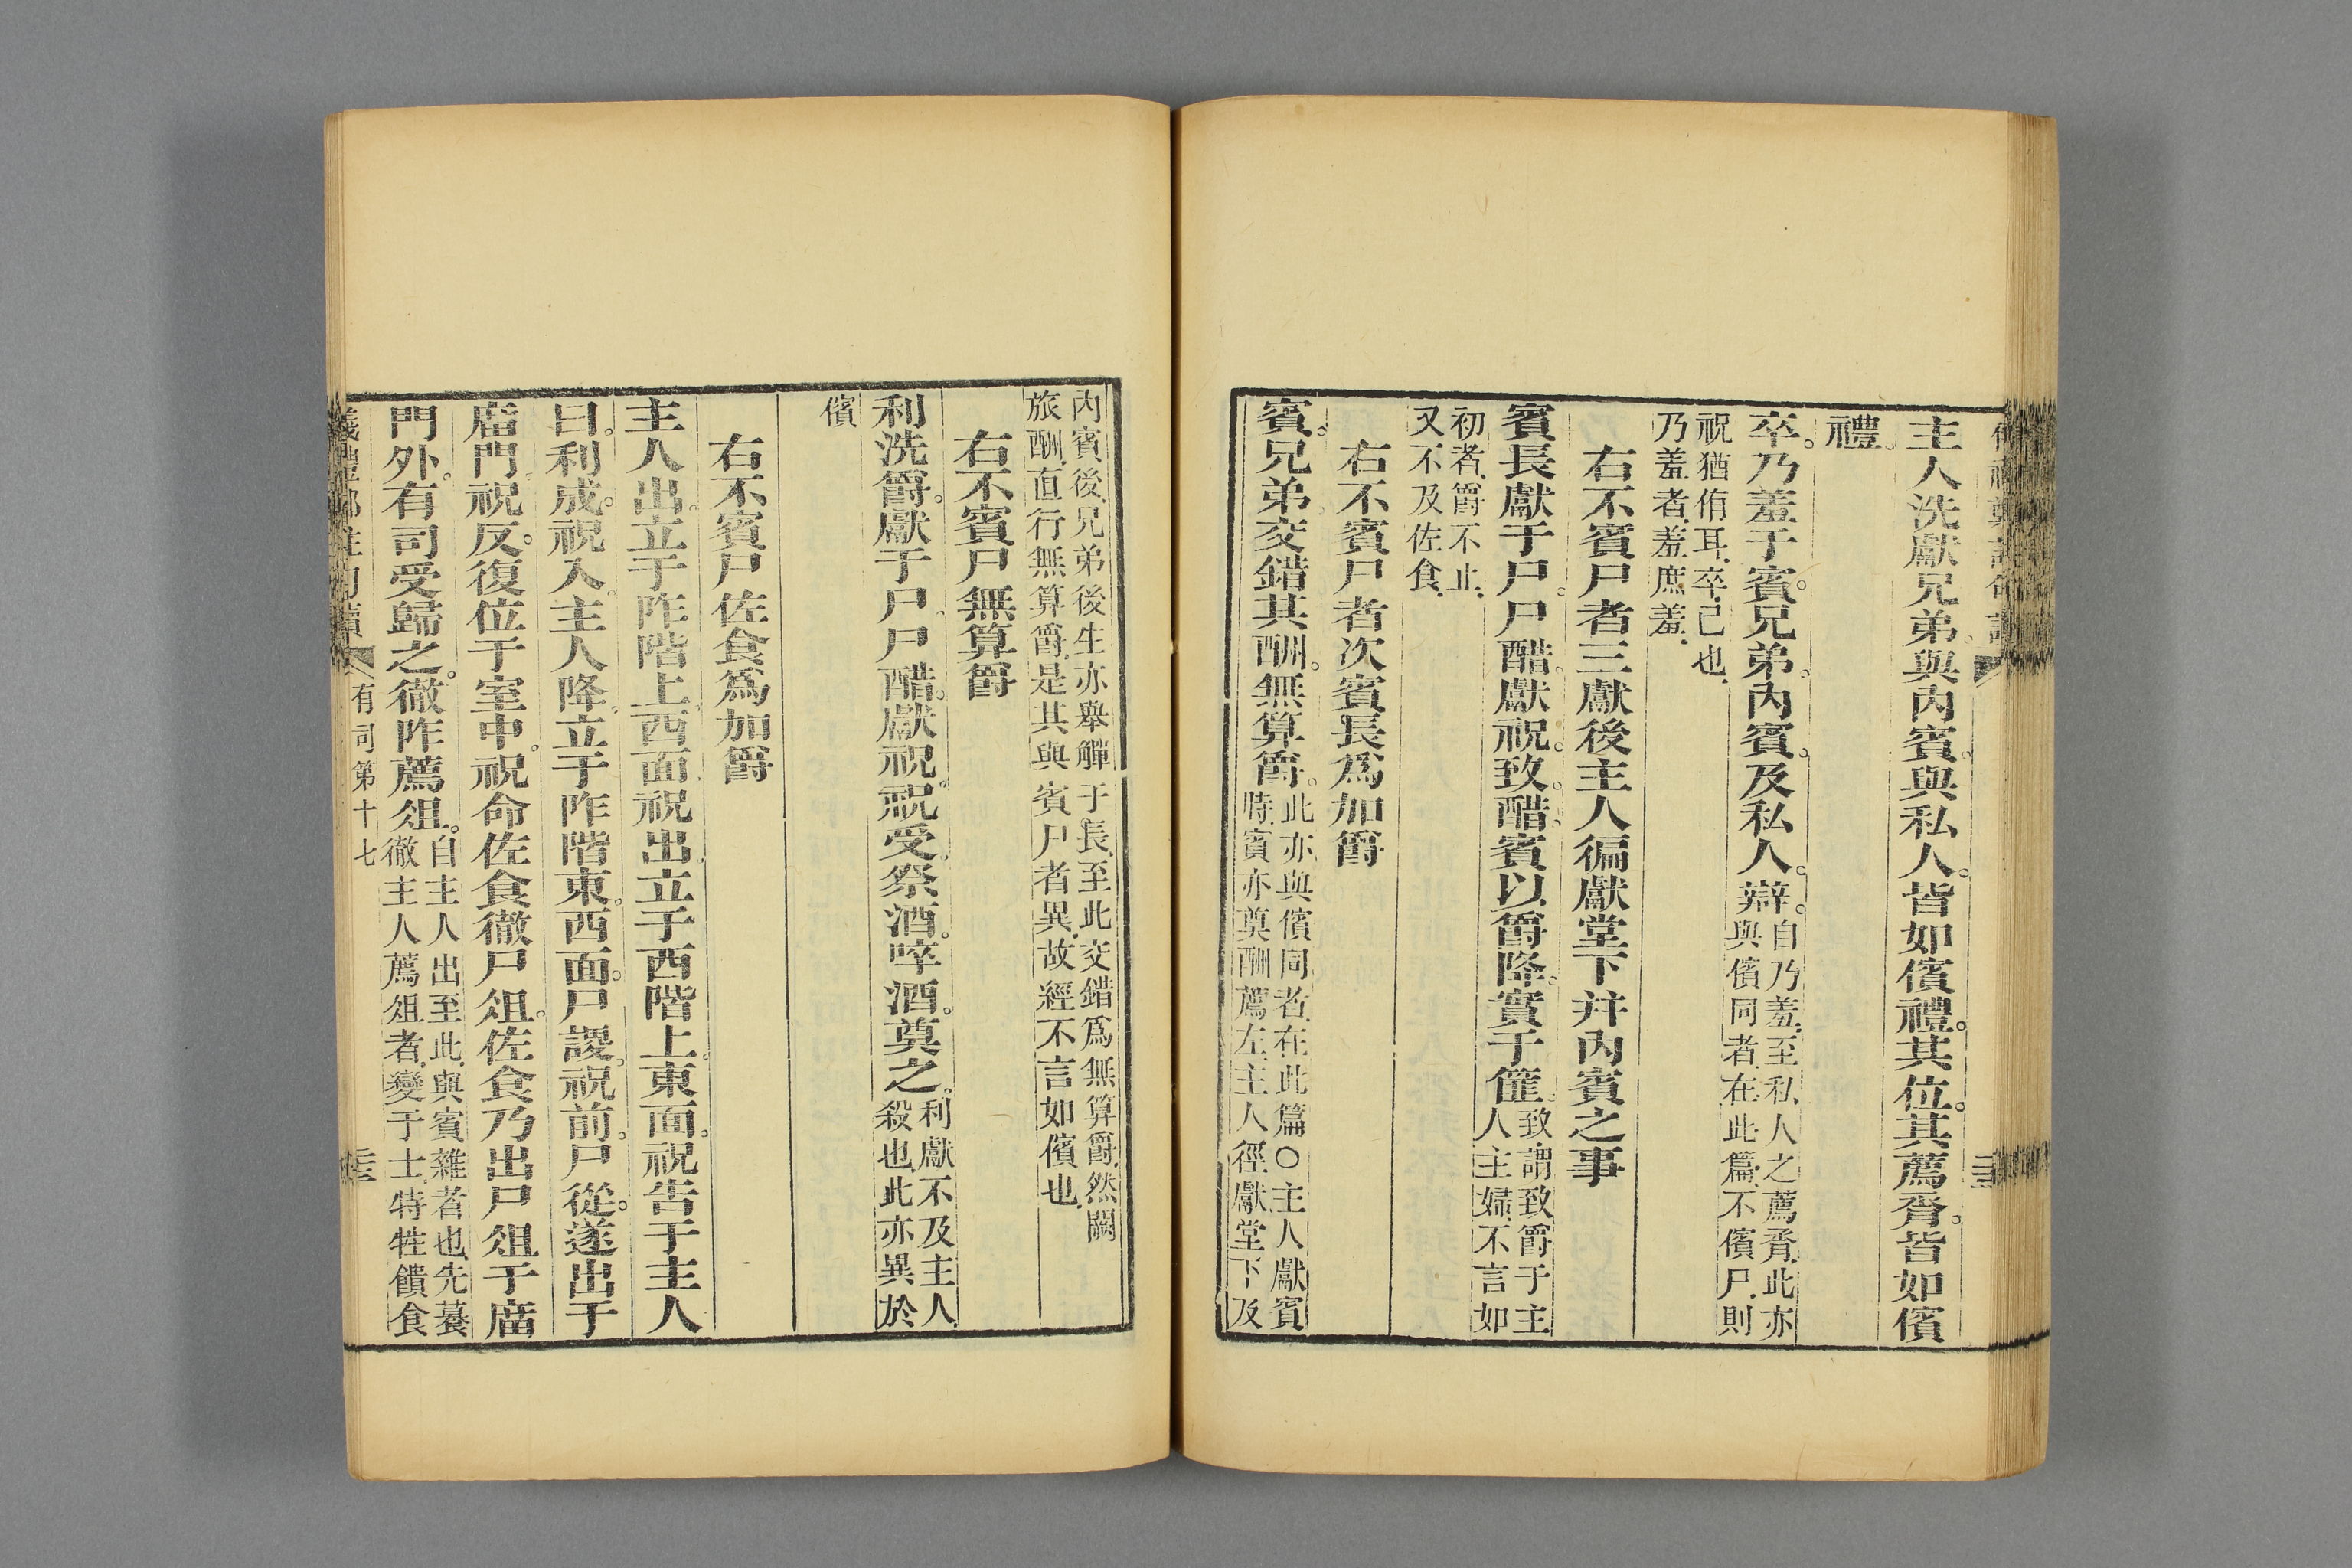 主人洗獻兄弟與內賓與私人皆如儐禮其位其薦脀皆如儐
禮
卒乃羞于賓兄弟內賓及私人辯自乃羞至私人之薦脀此亦
與儐同者在此篇不儐尸則
祝猶侑耳卒己也
乃羞者羞庶羞
右不賓尸者三獻後主人徧獻堂下幷內賓之事
賓長獻于尸尸醋獻祝致醋賓以爵降實于篚致謂致爵于主
人主婦不言如
初者爵不止
又不及佐食
右不賓尸者次賓長爲加爵
賓兄弟交錯其酬無算爵此亦與儐同者在此篇○主人獻賓
時賓亦奠酬薦左主人徑獻堂下及
內賓後兄弟後生亦舉觶于長至此交錯爲無算爵然闕
旅酬直行無算爵是其與賓尸者異故經不言如儐也
右不賓尸無算爵
利洗爵獻于尸尸醋獻祝祝受祭酒啐酒奠之利獻不及主人
殺也此亦異於
儐
右不賓尸佐食爲加爵
主人出立于阼階上西面祝出立于西階上東面祝告于主人
曰利成祝入主人降立于阼階東西面尸謖祝前尸從遂出于
庿門祝反復位于室中祝命佐食徹尸俎佐食乃出尸俎于庿
門外有司受歸之徹阼薦俎自主人出至此與賓雜者也先餕
徹主人薦俎者變于士特牲饋食
有司第十七